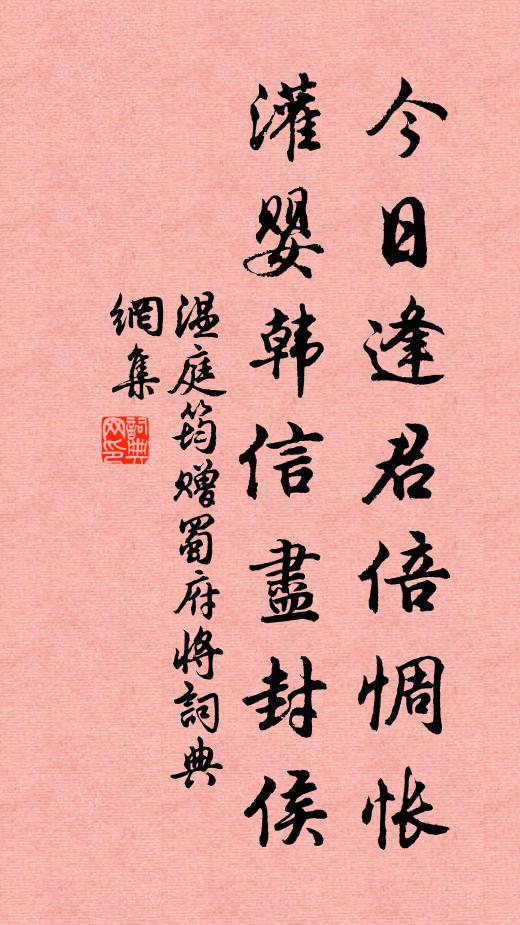 今日逢君倍惆怅
灌嬰韩信盡封侯
温庭筠赠蜀府将詞典
網集
詞典
网印